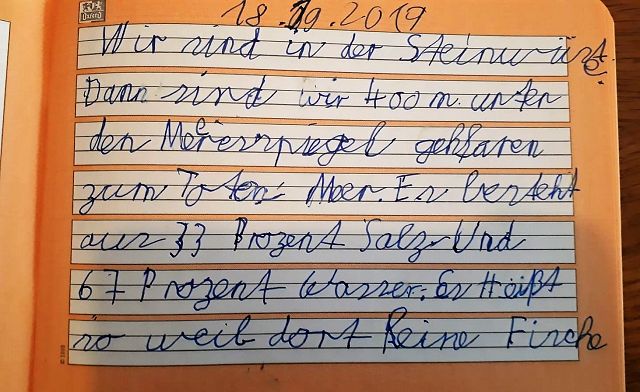 18.09.2019
Wir sind in der Steinwüste.
Dann sind wir 400 m. unten
den Meeresspiegel gehfaren
zum Toten Meer. Es besteht
aus 33 Prozent Salz. Und
67 Prozent Wasser. Es Heißt
so weil dort keine Fische